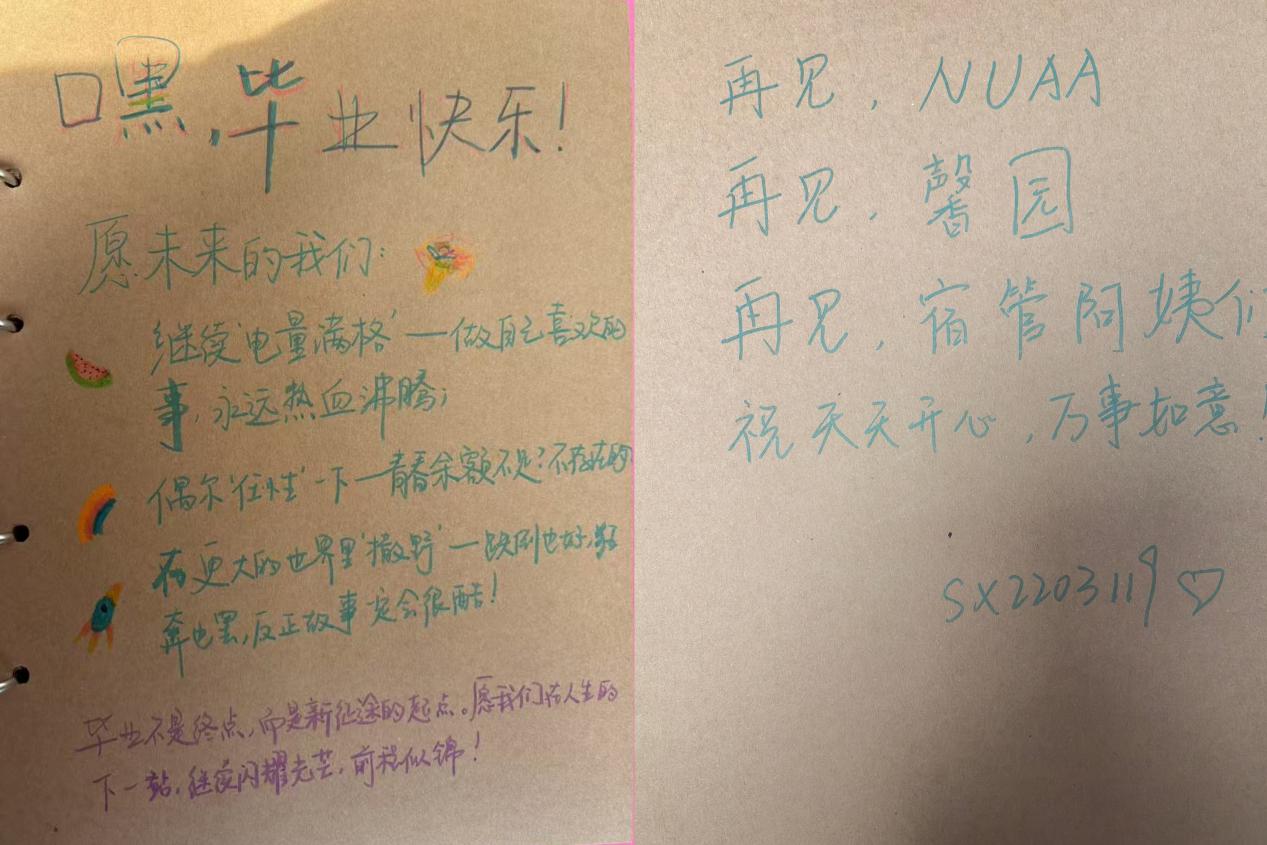 嘿,毕业快乐!
愿未来的我们:
继续'电量满格'一做自己喜欢的
事,永远热血沸腾;
偶尔'任性'一下一青春余额不足?不存在的
在更大的世界里'撒野'一跌倒也好,狂
奔也罢,反正故事一定会很酷!
毕业不是终点,而是新征途的起点。愿我们在人生的
下一站,继续闪耀光芒,前程似锦!
再见,NUAA
再见,馨园
再见,宿管阿姨们
祝天天开心,万事如意!
SX2203119